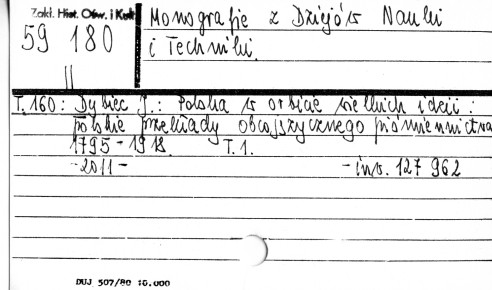 Zakł. Hist. Ośw. i Kult.
59 180
Monografie z Dziejów Nauki
i Techniki.
T. 160: Dybiec J.: Polska w orbicie wielkich idei:
polskie przekłady obcojęzycznego piśmiennictwa
1795-1918. T. 1.
-2011- -inw. 127 962
DUJ 507/80 10.000